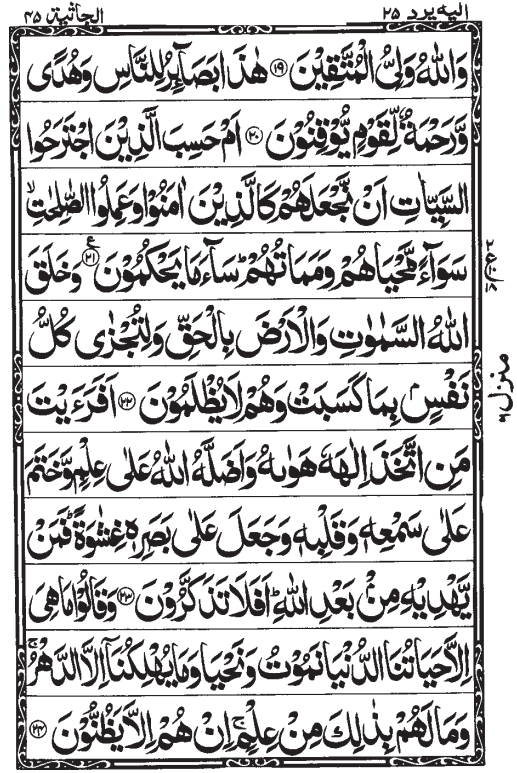 الیه یرد ۲۵
الجاثیة ۴۵
وَاللّٰهُ وَلِیُّ الْمُتَّقِیْنَ ﴿۱۹﴾ هٰذَا بَصَآىِٕرُ لِلنَّاسِ وَهُدًی
وَّرَحْمَةٌ لِّقَوْمٍ یُّوْقِنُوْنَ ﴿۲۰﴾ اَمْ حَسِبَ الَّذِیْنَ اجْتَرَحُوا
السَّیِّاٰتِ اَنْ نَّجْعَلَهُمْ كَالَّذِیْنَ اٰمَنُوْا وَعَمِلُوا الصّٰلِحٰتِ ۙ
سَوَآءً مَّحْیَاهُمْ وَمَمَاتُهُمْ ؕ سَآءَ مَا یَحْكُمُوْنَ ﴿۲۱﴾ ع وَخَلَقَ
اللّٰهُ السَّمٰوٰتِ وَالْاَرْضَ بِالْحَقِّ وَلِتُجْزٰی كُلُّ
نَفْسٍۭ بِمَا كَسَبَتْ وَهُمْ لَا یُظْلَمُوْنَ ﴿۲۲﴾ اَفَرَءَیْتَ
مَنِ اتَّخَذَ اِلٰهَهٗ هَوٰىهُ وَاَضَلَّهُ اللّٰهُ عَلٰی عِلْمٍ وَّخَتَمَ
عَلٰی سَمْعِهٖ وَقَلْبِهٖ وَجَعَلَ عَلٰی بَصَرِهٖ غِشٰوَةً ؕ فَمَنْ
یَّهْدِیْهِ مِنْۢ بَعْدِ اللّٰهِ ؕ اَفَلَا تَذَكَّرُوْنَ ﴿۲۳﴾ وَقَالُوْا مَا هِیَ
اِلَّا حَیَاتُنَا الدُّنْیَا نَمُوْتُ وَنَحْیَا وَمَا یُهْلِكُنَاۤ اِلَّا الدَّهْرُ ۚ
وَمَا لَهُمْ بِذٰلِكَ مِنْ عِلْمٍ ۚ اِنْ هُمْ اِلَّا یَظُنُّوْنَ ﴿۲۴﴾
منزل ۶